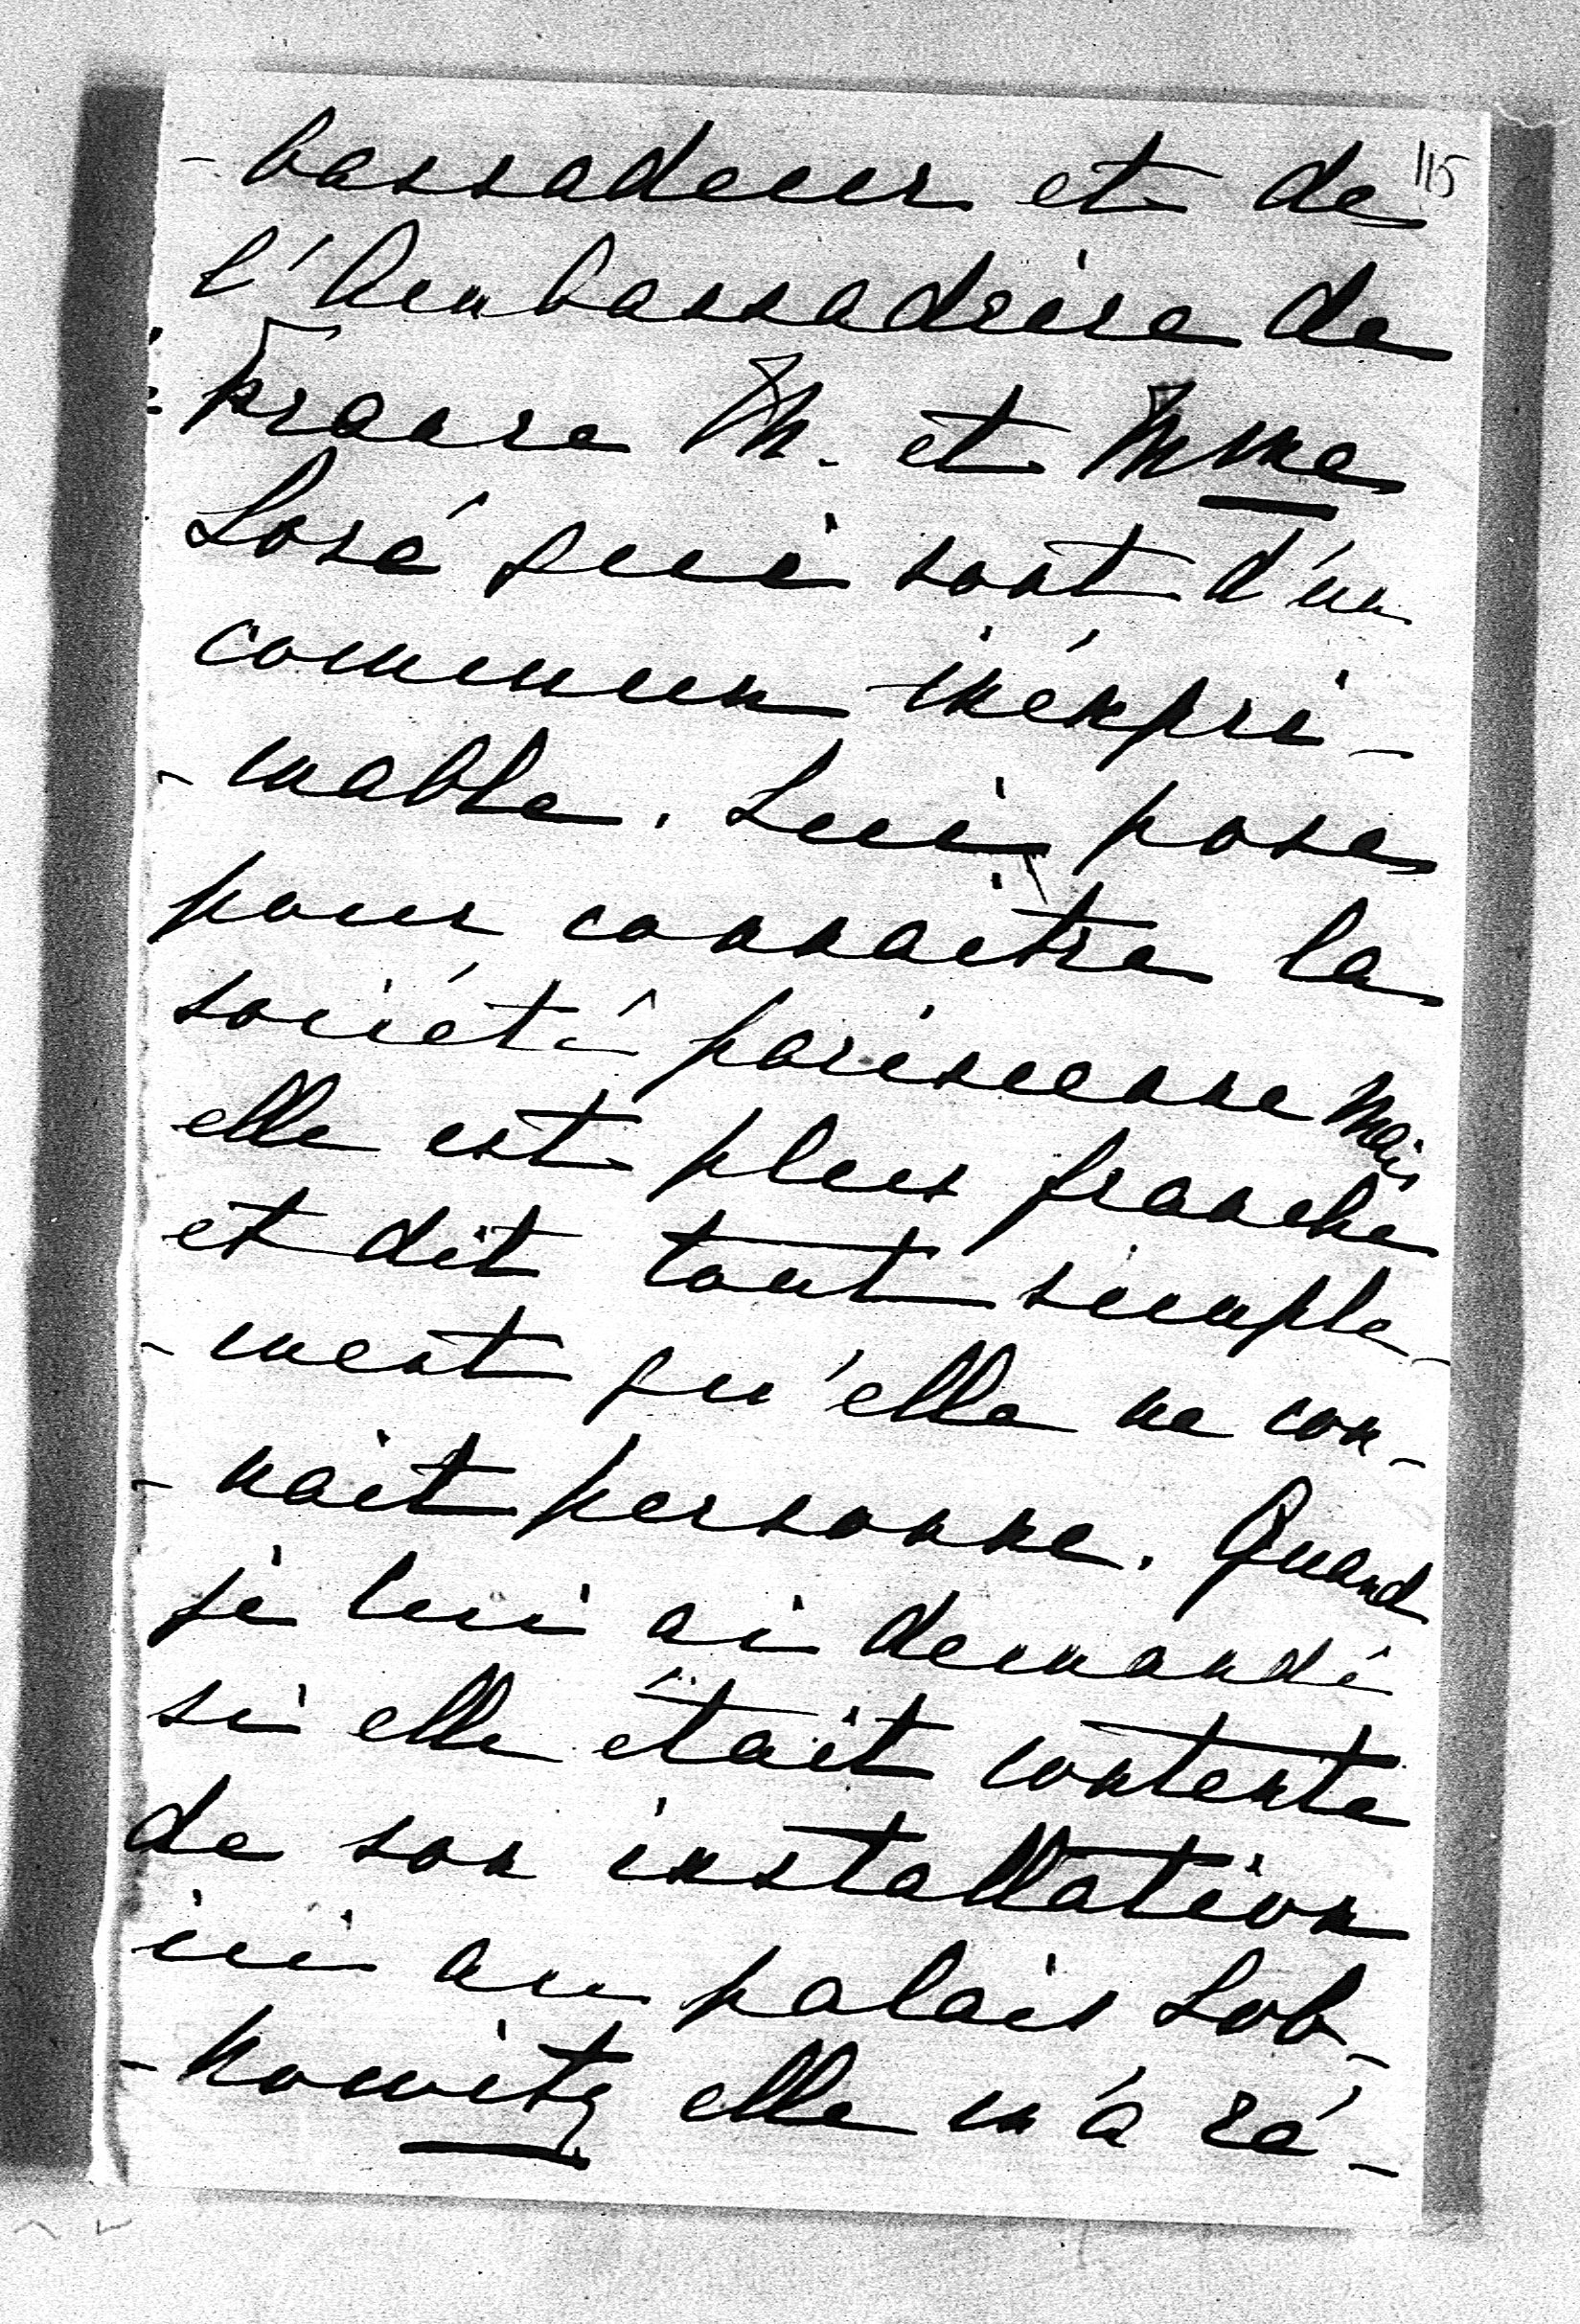 115
-bassadeur et de
l'Ambassadrice de
France M. et Mme
Losé qui sont d'un
commun inéxpri-
-mable. Lui pose
pour connaitre la
société parisienne mais
elle est plus franche
et dit tout simple-
-ment qu'elle ne con-
-nait personne. Quand
je lui ai demandé
si elle était contente
de son installation
ici au palais Lob-
-kowitz elle m'a ré-